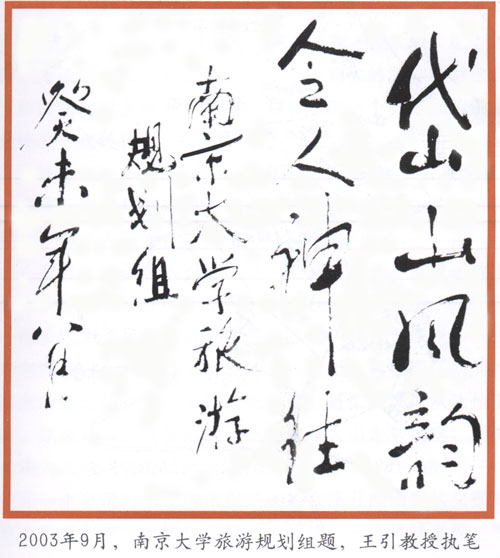 岱山风韵
令人神往
南京大学旅游
规划组
癸未年八月
2003年9月，南京大学旅游规划组题，王引教授执笔